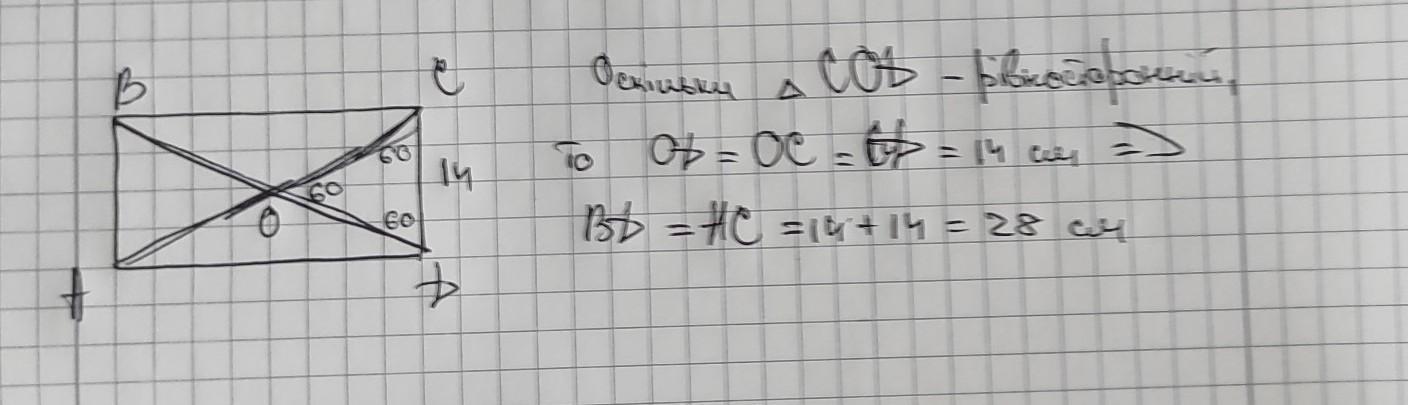 B
C
60
14
60
60
O
A
D
Оскільки △ COD - рівносторонній,
То OD = OC = CD = 14 см =>
BD = AC = 14 + 14 = 28 см